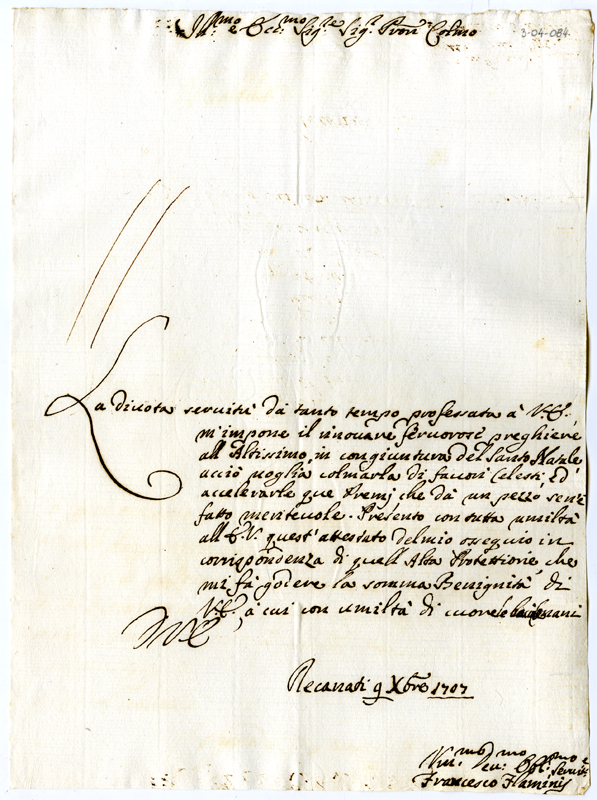 Ill.mo e Ecc.mo Sig.re Sig.r Pron Colmo
3-04-084
La divota servitù da tanto tempo professata à V.E.
m'impone il rinovare fervorosi preghiere
all'Altissimo in congiuntura del Santo Natale
acciò voglia colmarla di favori Celesti, Ed
accelerarle que Premj che da un pezzo se n'è
fatto meritevole. Presento con tutta umiltà
all'E.V. quest'attestato del mio ossequio in
corrispondenza di quell'Alta Protettione, che
mi fà godere la somma Benignità di
V.E., à cui con umiltà di cuore le mani
Recanati 9 Xbre 1707
Um.mo Dev.mo Obl.mo e
Servit.
Francesco Flaminij